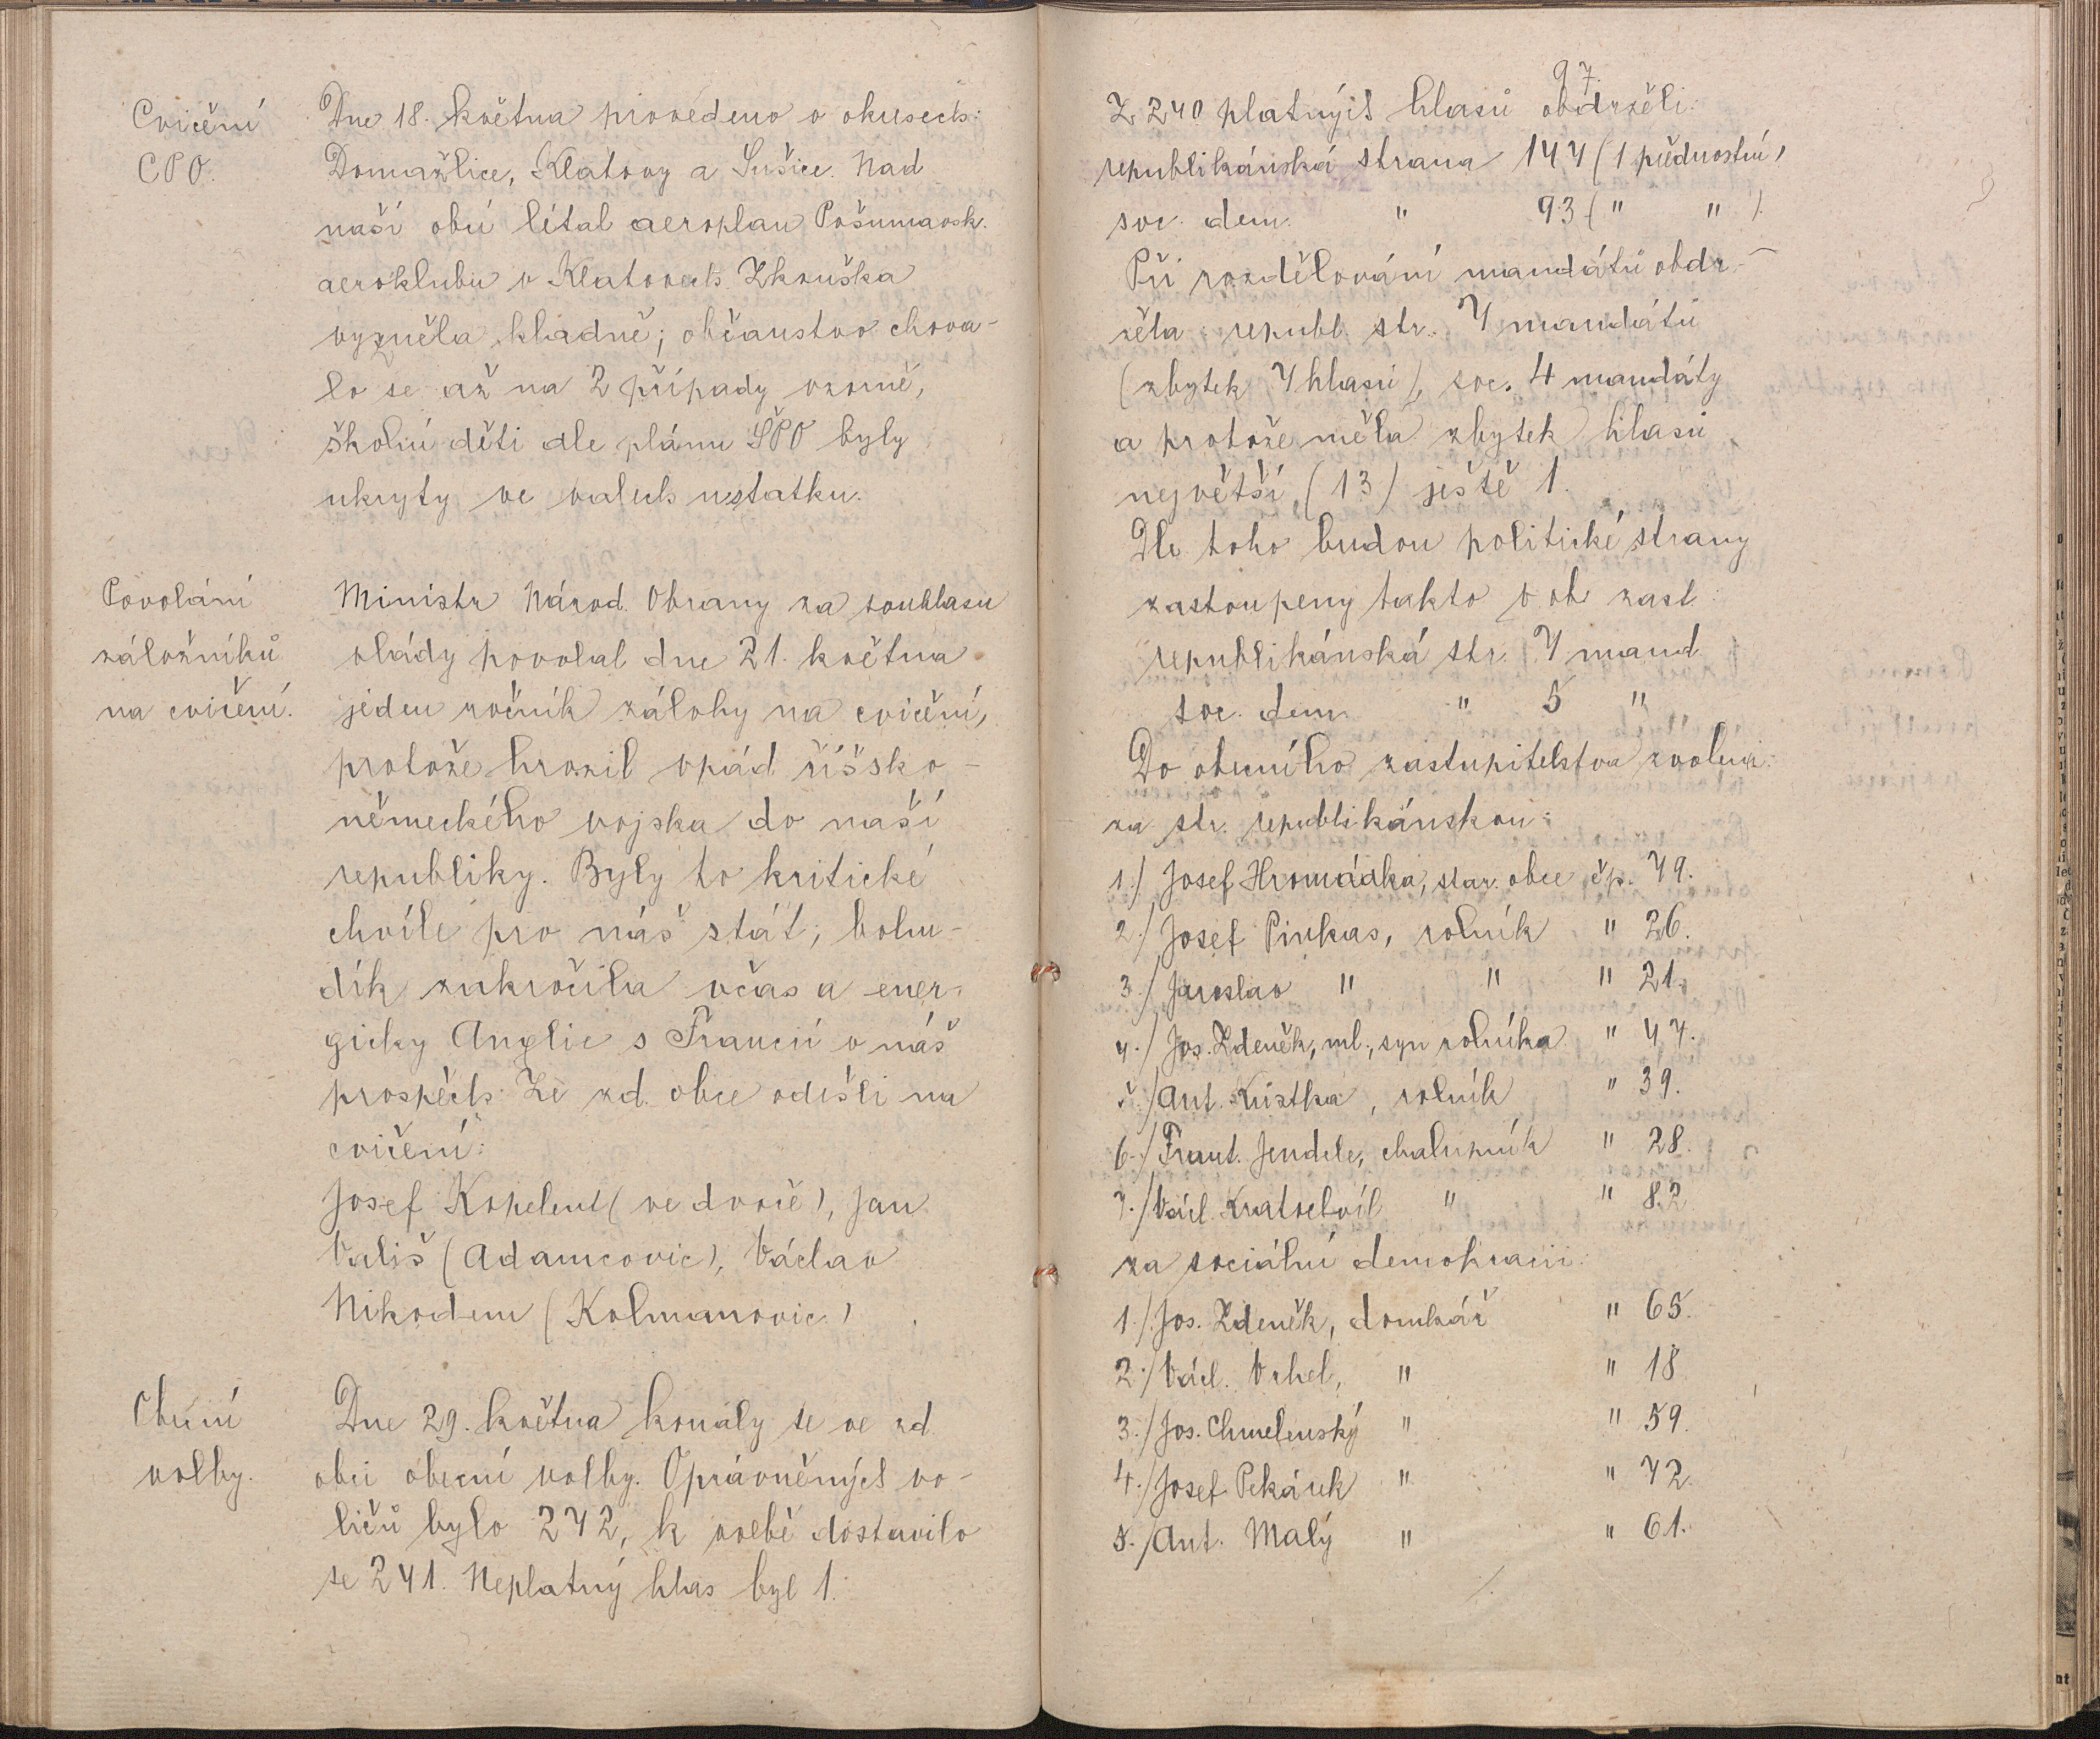 Cvičení
CPO.
Dne 18. května provedeno v okresech:
Domažlice, Klatovy a Sušice. Nad
naší obcí lítal aeroplan Pošumavsk.
aeroklubu v Klatovech. Zkouška
vyzněla kladně; občanstvo chova-
lo se až na 2 případy vzorně,
školní děti dle plánu ŠPO byly
ukryty ve valech u statku.
Povolání
záložníků
na cvičení.
Ministr Národ. Obrany za souhlasu
vlády povolal dne 21. května
jeden ročník zálohy na cvičení,
protože hrozil vpád říšsko-
německého vojska do naší
republiky. Byly to kritické
chvíle pro náš stát; bohu-
dík zakročila včas a ener-
gicky Anglie s Francií v náš
prospěch. Ze zd. obce odešli na
cvičení:
Josef Kopelent (ve dvoře), Jan
Vališ (Adamcovic), Václav
Nikodem (Kolmanovic)
Obecní
volby.
Dne 29. května konaly se ve zd.
obci obecní volby. Oprávněných vo-
ličů bylo 242, k volbě dostavilo
se 241. Neplatný hlas byl 1.
97.
Z 240 platných hlasů obdržely:
republikánská strana 147 (1 přednostní)
soc. dem. " 93 (" ").
Při rozdělování mandátů obdr-
žela republ. str. 7 mandátů
(zbytek 7 hlasů), soc. 4 mandáty
a protože měla zbytek hlasů
největší (13) ještě 1.
Dle toho budou politické strany
zastoupeny takto v ob. zast.:
republikánská str. 7 mand.
soc. dem. " 5 "
Do obecního zastupitelstva zvoleni:
za str. republikánskou:
1./ Josef Hromádka, star. obce čp. 49.
2./ Josef Pinkas, rolník " 26.
3./ Jaroslav " " " 21.
4./ Jos. Zdeněk, ml., syn rolníka " 47.
5./ Ant. Kristka, rolník " 39.
6./ Frant. Jendele, chalupník " 28.
7./ Václ. Kratochvíl " " 82
za sociální demokracii:
1./ Jos. Zdeněk, domkář " 65.
2./ Václ. Vrhel, " " 18
3./ Jos. Chmelenský " " 59.
4./ Josef Pekárek " " 72.
5./ Ant. Malý " " 61.